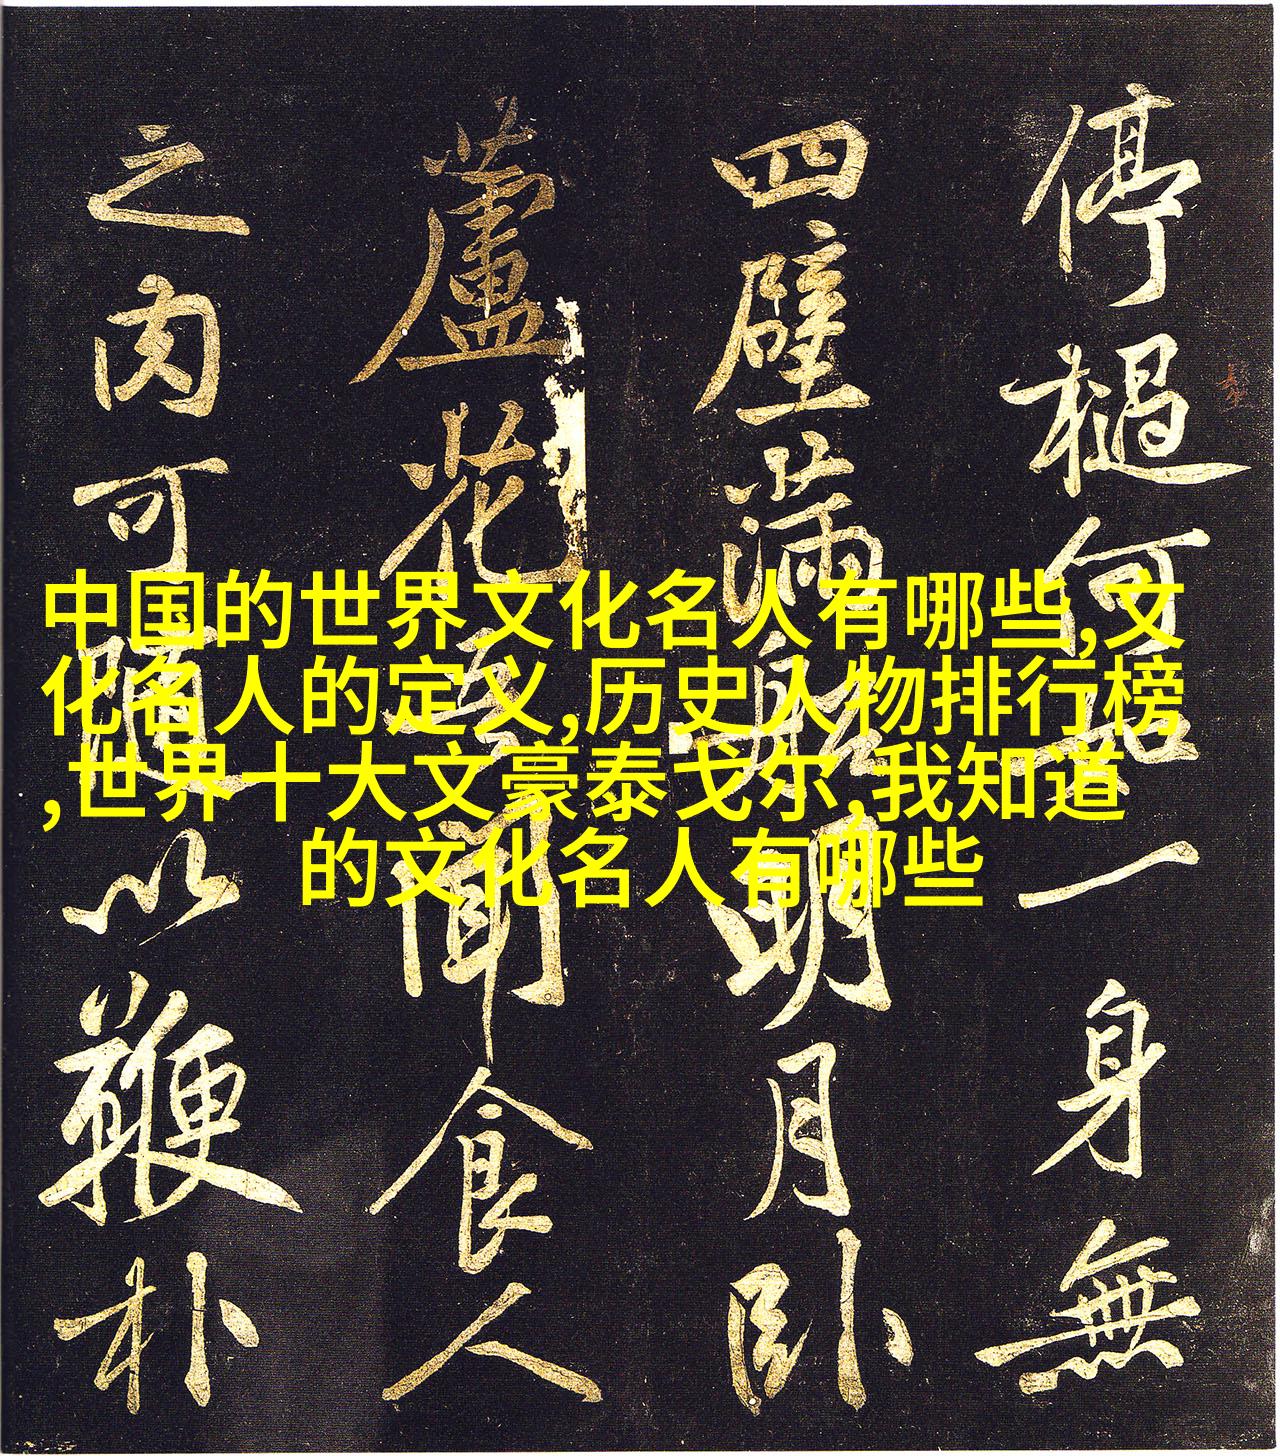 中国的世界文化名人有哪些,文
化名人的定义,历史人物排行榜
,世界十大文豪泰戈尔,我知道
的文化名人有哪些
停檛何如一身無
四壁滿身臥明月臥
蘆花吾聞食人
之肉可隨以鞭朴